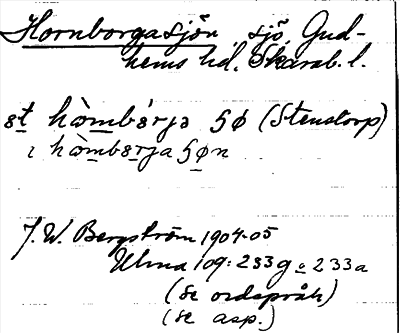 Hornborgasjön, sjö, Gud-
hems hd, Skarab. l.
st hòmbo̊rjə ʃø (Stenstorp)
i hòmbo̊rja ʃøn
J. W. Bergström 1904-05
Ulma 109: 233g o 233a
(se ordspråk)
(se asp.)